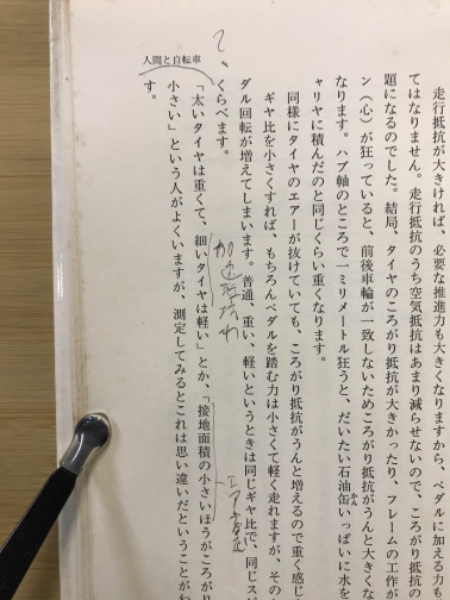 人間と自転車
走行抵抗が大きければ、必要な推進力も大きくなりますから、ペダルに加える力も
てはなりません。走行抵抗のうち空気抵抗はあまり減らせないので、ころがり抵抗の
題になるのでした。結局、タイヤのころがり抵抗が大きかったり、フレームの工作が
ン（心）が狂っていると、前後車輪が一致しないためころがり抵抗がうんと大きくな
なります。ハブ軸のところで一ミリメートル狂うと、だいたい石油缶いっぱいに水を
かん
ャリヤに積んだのと同じくらい重くなります。
同様にタイヤのエアーが抜けていても、ころがり抵抗がうんと増えるので重く感じ
ギヤ比を小さくすれば、もちろんペダルを踏む力は小さくて軽く走れますが、その
ダル回転が増えてしまいます。普通、重い、軽いというときは同じギヤ比で、同じス
くらべます。
「太いタイヤは重くて、細いタイヤは軽い」とか、「接地面積の小さいほうがころがり
小さい」という人がよくいますが、測定してみるとこれは思い違いだということがわ
す。
加速抵抗